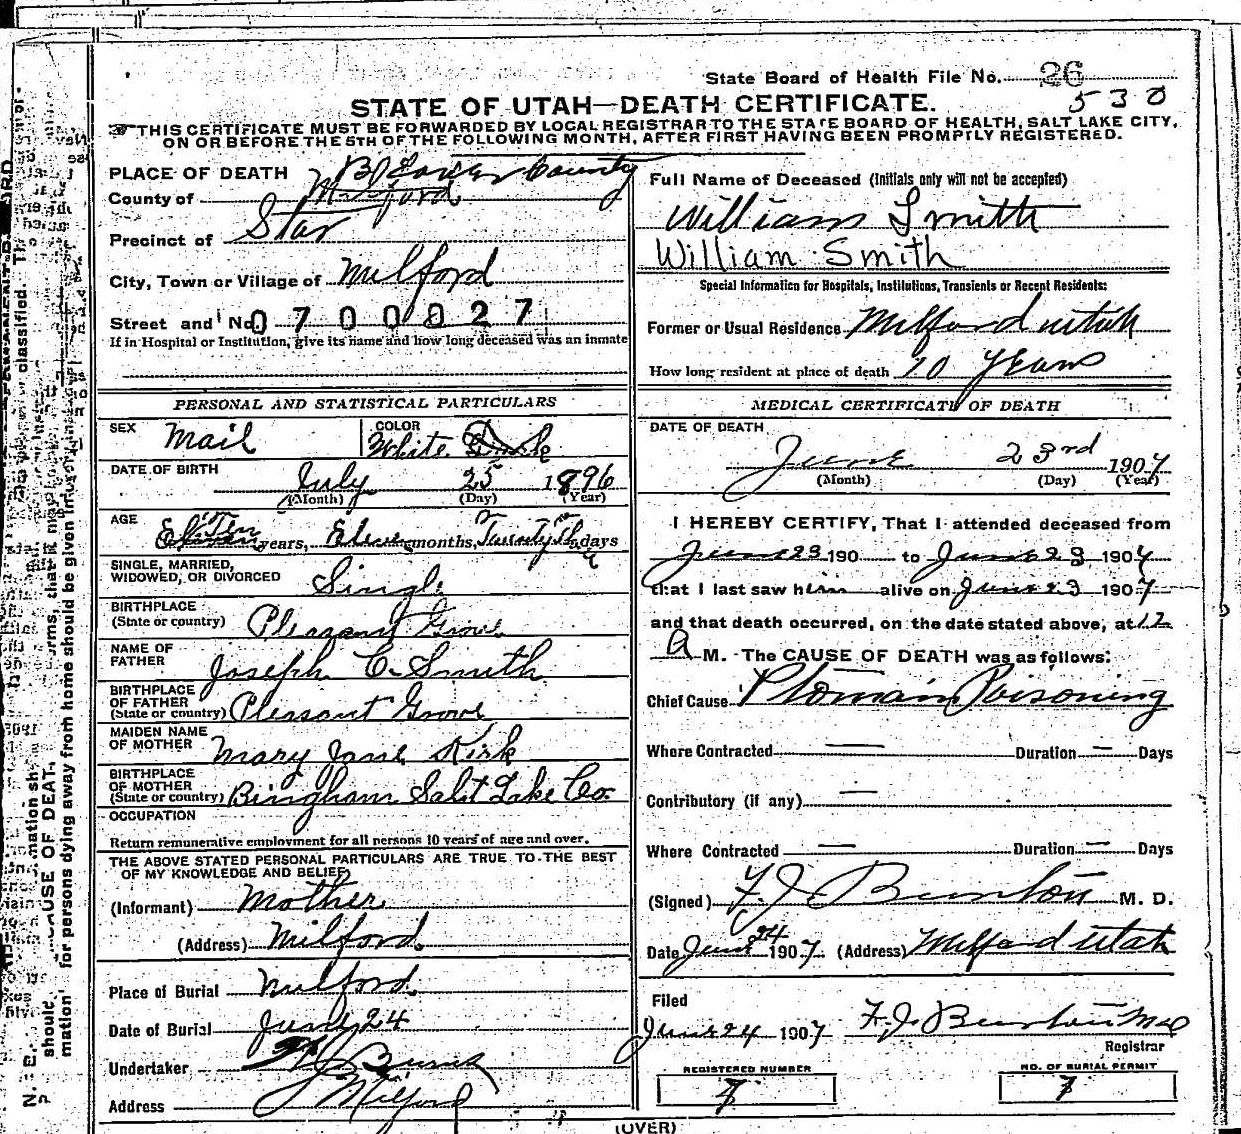 State Board of Health File No. 26
530
STATE OF UTAH—DEATH CERTIFICATE.
THIS CERTIFICATE MUST BE FORWARDED BY LOCAL REGISTRAR TO THE STATE BOARD OF HEALTH, SALT LAKE CITY,
ON OR BEFORE THE 5TH OF THE FOLLOWING MONTH, AFTER FIRST HAVING BEEN PROMPTLY REGISTERED.
PLACE OF DEATH County
County of Milford
Precinct of Star
City, Town or Village of Milford
Street and No. 0700027
If in Hospital or Institution, give its name and how long deceased was an inmate
PERSONAL AND STATISTICAL PARTICULARS
SEX Mail COLOR White
DATE OF BIRTH July 25 1896
(Month) (Day) (Year)
AGE Ten years, months, days
SINGLE, MARRIED,
WIDOWED, OR DIVORCED Single
BIRTHPLACE
(State or country) Pleasant Grove
NAME OF
FATHER Joseph C. Smith
BIRTHPLACE
OF FATHER
(State or country) Pleasant Grove
MAIDEN NAME
OF MOTHER Mary Jane Kirk
BIRTHPLACE
OF MOTHER
(State or country) Bingham Salt Lake Co.
OCCUPATION
Return remunerative employment for all persons 10 years of age and over.
THE ABOVE STATED PERSONAL PARTICULARS ARE TRUE TO THE BEST
OF MY KNOWLEDGE AND BELIEF
(Informant) Mother
(Address) Milford.
Place of Burial Milford.
Date of Burial June 24
Undertaker Burns
Address Milford
Full Name of Deceased (Initials only will not be accepted)
William Smith
William Smith
Special Information for Hospitals, Institutions, Transients or Recent Residents:
Former or Usual Residence Milford Utah
How long resident at place of death 10 Years
MEDICAL CERTIFICATE OF DEATH
DATE OF DEATH
June 23rd 1907
(Month) (Day) (Year)
I HEREBY CERTIFY, That I attended deceased from
June 23 190 to June 23 1907
that I last saw him alive on June 23 1907
and that death occurred, on the date stated above, at 12
A M. The CAUSE OF DEATH was as follows:
Chief Cause Ptomain Poisoning
Where Contracted — Duration — Days
Contributory (if any) —
Where Contracted — Duration — Days
(Signed) F. J. Burton M. D.
Date June 24 1907 (Address) Milford Utah
Filed
June 24 1907 F. J. Burton MD
Registrar
REGISTERED NUMBER NO. OF BURIAL PERMIT
7 7
(OVER)
classified.
for persons dying away from home should be given
CAUSE OF DEAT
N. B.
should
mation